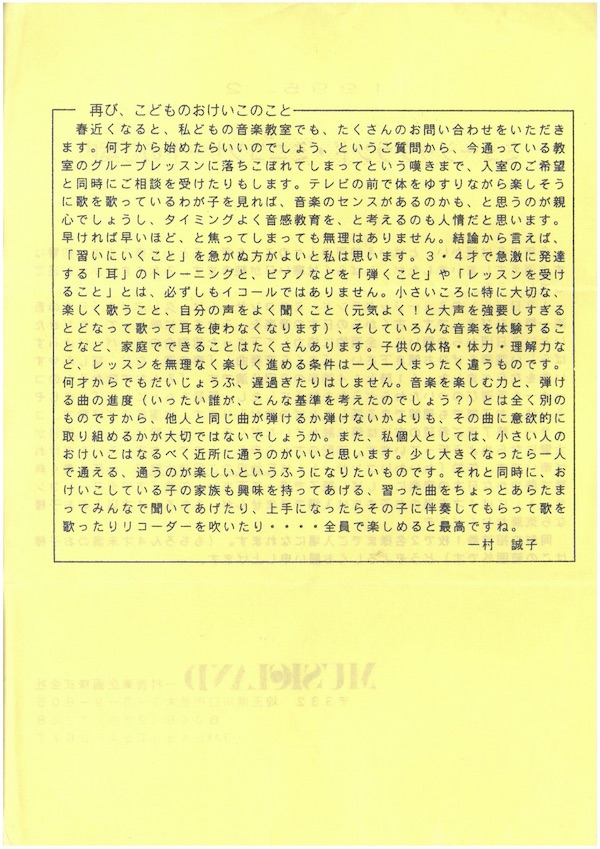 再び、こどものおけいこのこと
春近くなると、私どもの音楽教室でも、たくさんのお問い合わせをいただき
ます。何才から始めたらいいのでしょう、というご質問から、今通っている教
室のグループレッスンに落ちこぼれてしまってという嘆きまで、入室のご希望
と同時にご相談を受けたりもします。テレビの前で体をゆすりながら楽しそう
に歌を歌っているわが子を見れば、音楽のセンスがあるのかも、と思うのが親
心でしょうし、タイミングよく音感教育を、と考えるのも人情だと思います。
早ければ早いほど、と焦ってしまっても無理はありません。結論から言えば、
「習いにいくこと」を急がぬ方がよいと私は思います。３・４才で急激に発達
する「耳」のトレーニングと、ピアノなどを「弾くこと」や「レッスンを受け
ること」とは、必ずしもイコールではありません。小さいころに特に大切な、
楽しく歌うこと、自分の声をよく聞くこと（元気よく！と大声を強要しすぎる
とどなって歌って耳を使わなくなります）、そしていろんな音楽を体験するこ
となど、家庭でできることはたくさんあります。子供の体格・体力・理解力な
ど、レッスンを無理なく楽しく進める条件は一人一人まったく違うものです。
何才からでもだいじょうぶ、遅過ぎたりはしません。音楽を楽しむ力と、弾け
る曲の進度（いったい誰が、こんな基準を考えたのでしょう？）とは全く別の
ものですから、他人と同じ曲が弾けるか弾けないかよりも、その曲に意欲的に
取り組めるかが大切ではないでしょうか。また、私個人としては、小さい人の
おけいこはなるべく近所に通うのがいいと思います。少し大きくなったら一人
で通える、通うのが楽しいというふうになりたいものです。それと同時に、お
けいこしている子の家族も興味を持ってあげる、習った曲をちょっとあらたま
ってみんなで聞いてあげたり、上手になったらその子に伴奏してもらって歌を
歌ったりリコーダーを吹いたり・・・・全員で楽しめると最高ですね。
一村　誠子
MUSICLAND